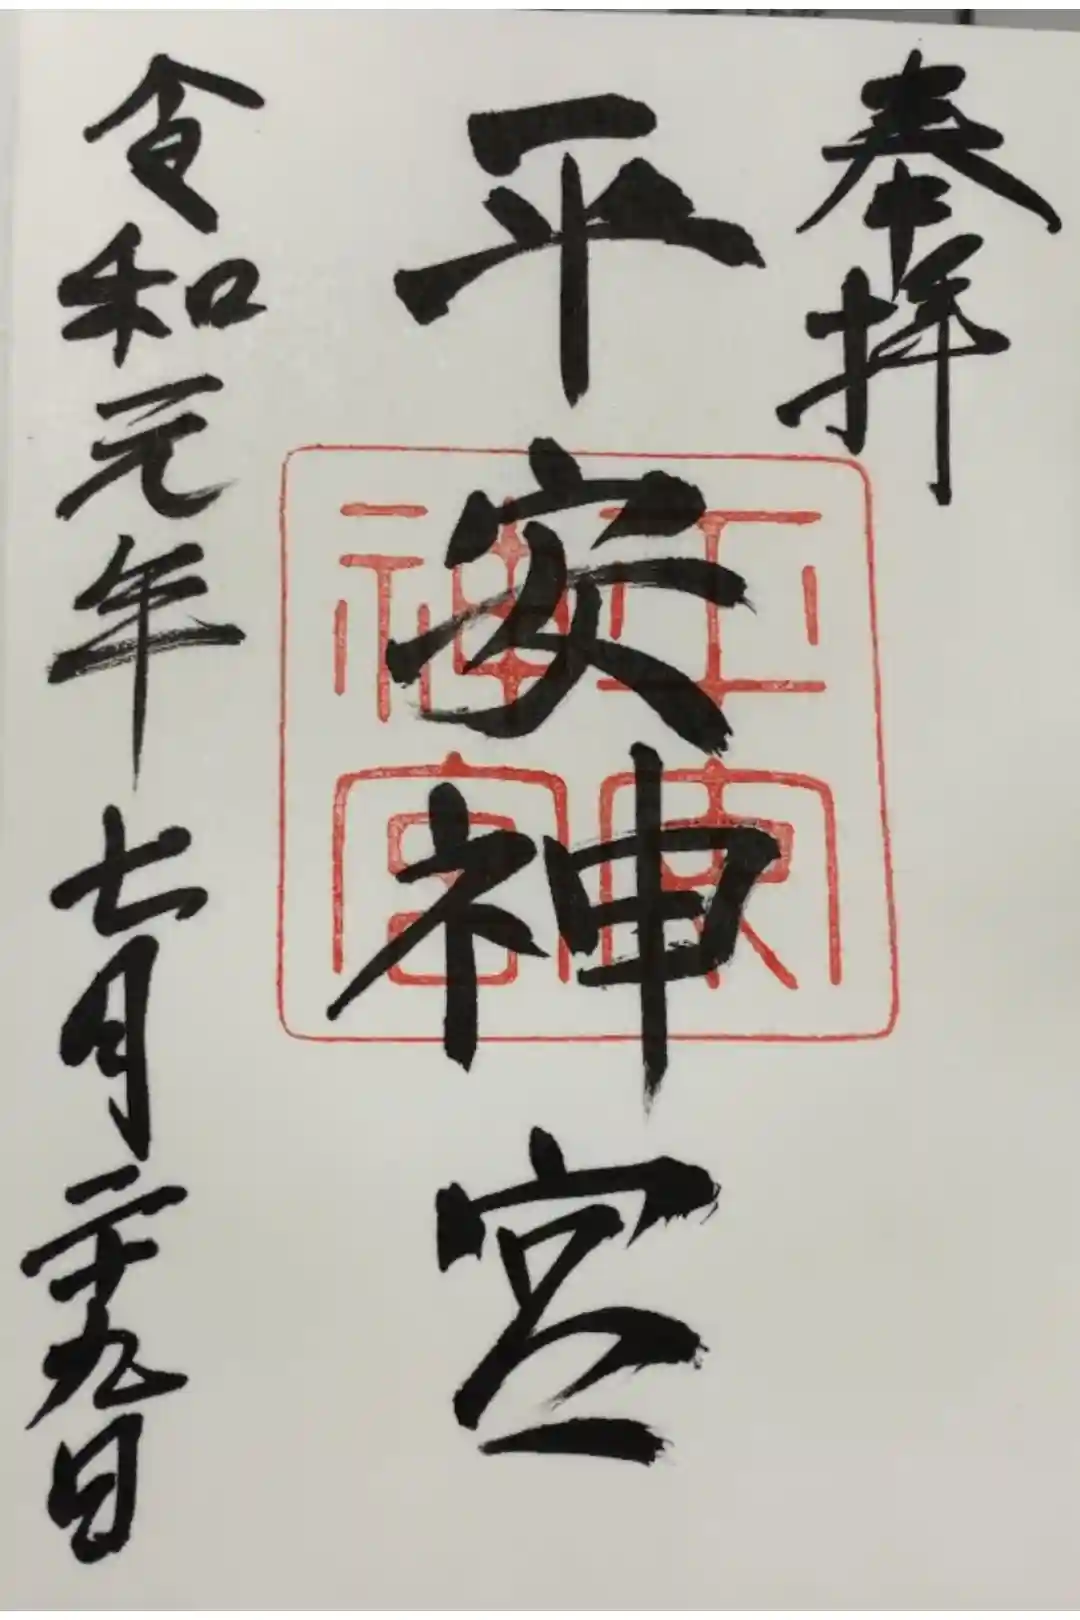 奉拝
平安神宮
平安神宮
令和元年七月二十九日